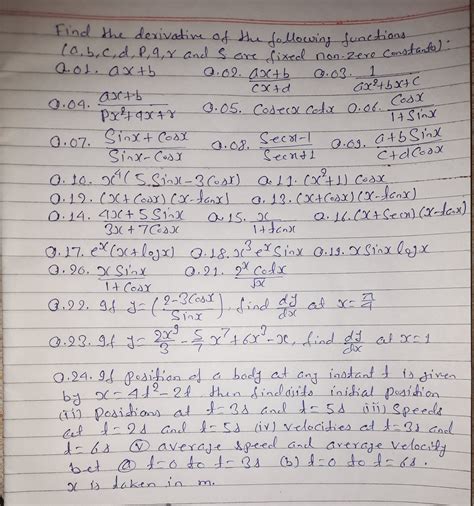 Find the derivative of the following functions
(a, b, c, d, p, q, r and s are fixed non-zero constants):
Q.01. ax+b Q.02. (ax+b)/(cx+d) Q.03. 1/(ax²+bx+c)
Q.04. (ax+b)/(px²+qx+r) Q.05. Cosecx Cotx Q.06. Cosx/(1+Sinx)
Q.07. (Sinx+Cosx)/(Sinx-Cosx) Q.08. (Secx-1)/(Secx+1) Q.09. (a+bSinx)/(c+dCosx)
Q.10. x⁴(5Sinx-3Cosx) Q.11. (x²+1) Cosx
Q.12. (x+Cosx)(x-tanx) Q.13. (x+Cosx)(x-tanx)
Q.14. (4x+5Sinx)/(3x+7Cosx) Q.15. x/(1+tanx) Q.16. (x+Secx)(x-tanx)
Q.17. eˣ(x+logx) Q.18. x³eˣSinx Q.19. xSinx logx
Q.20. xSinx/(1+Cosx) Q.21. 2ˣCotx/√x
Q.22. If y=((2-3Cosx)/Sinx), find dy/dx at x=π/4
Q.23. If y=2x⁹/3-5/7 x⁷+6x³-x, find dy/dx at x=1
Q.24. If position of a body at any instant t is given
by x=4t²-2t then find(i) its initial position
(ii) Positions at t=3s and t=5s iii) Speeds
at t=2s and t=5s (iv) velocities at t=3s and
t=6s (v) average speed and average velocity
bet (a) t=0 to t=3s (b) t=0 to t=6s.
x is taken in m.